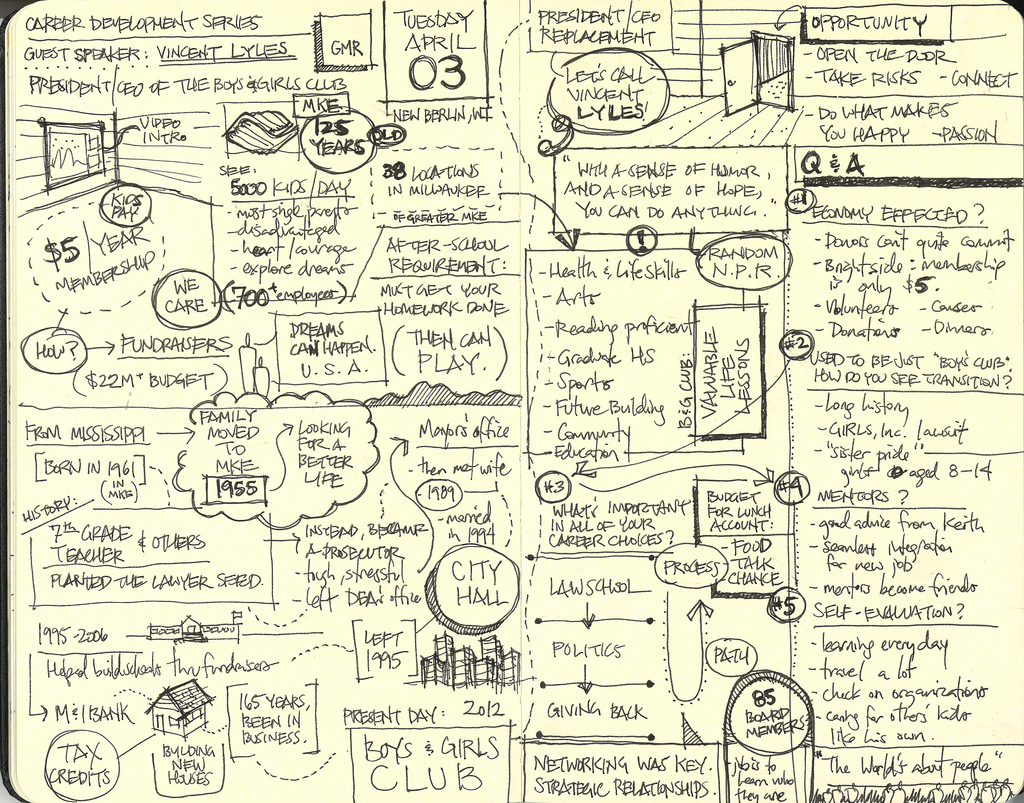 CAREER DEVELOPMENT SERIES
GUEST SPEAKER: VINCENT LYLES
PRESIDENT/CEO OF THE BOYS & GIRLS CLUB
GMR
TUESDAY
APRIL
03
NEW BERLIN, WI
VIDEO
INTRO
MKE
125
YEARS
OLD
KIDS
PAY
$5/YEAR
MEMBERSHIP
SEE:
5000 KIDS/DAY
- disadvantaged
- heart/courage
- explore dreams
(700+ employees)
WE
CARE
38 LOCATIONS
IN MILWAUKEE
- OF GREATER MKE
AFTER-SCHOOL
REQUIREMENT:
MUST GET YOUR
HOMEWORK DONE
(THEN CAN
PLAY.)
HOW?
FUNDRAISERS
($22M+ BUDGET)
DREAMS
CAN HAPPEN.
U.S.A.
FROM MISSISSIPPI
[BORN IN 1961
(IN MKE)
FAMILY
MOVED
TO
MKE
1955
LOOKING
FOR A
BETTER
LIFE
HISTORY:
7TH GRADE
TEACHER & OTHERS
PLANTED THE LAWYER SEED.
INSTEAD, BECAME
A PROSECUTOR
- tough/stressful
- left DEA's office
Mayor's office
- then met wife
1989
- married
in 1994
CITY
HALL
[LEFT
1995]
1995-2006
Helped build schools thru fundraisers
M&I BANK
TAX
CREDITS
BUILDING
NEW
HOUSES
[165 YEARS,
BEEN IN
BUSINESS.]
PRESENT DAY: 2012
BOYS & GIRLS
CLUB
PRESIDENT/CEO
REPLACEMENT
LET'S CALL
VINCENT
LYLES!
"WITH A SENSE OF HUMOR,
AND A SENSE OF HOPE,
YOU CAN DO ANYTHING."
!
RANDOM
N.P.R.
- Health & Life Skills
- Arts
- Reading proficient
- Graduate HS
- Sports
- Future Building
- Community
- Education
B&G CLUB:
VALUABLE
LIFE
LESSONS
#3
WHAT'S IMPORTANT
IN ALL OF YOUR
CAREER CHOICES?
LAW SCHOOL
POLITICS
GIVING BACK
PROCESS
PATH
BUDGET
FOR LUNCH
ACCOUNT:
- FOOD
- TALK
- CHANCE
NETWORKING WAS KEY.
STRATEGIC RELATIONSHIPS.
85
BOARD
MEMBERS
Job is to
learn who
they are
OPPORTUNITY
- OPEN THE DOOR
- TAKE RISKS - CONNECT
- DO WHAT MAKES
YOU HAPPY - PASSION
Q & A
#1
ECONOMY EFFECTED?
- Donors can't quite commit
- Brightside: membership
is only $5.
- Volunteers - Causes
- Donations - Dinners
#2
USED TO BE JUST "BOYS CLUB"
HOW DO YOU SEE TRANSITION?
- Long history
- GIRLS, Inc. lawsuit
- "sister pride"
girls aged 8-14
#4
MENTORS?
- good advice from Keith
- seamless integration
for new job
- mentors become friends
#5
SELF-EVALUATION?
- learning every day
- travel a lot
- check on organizations
- caring for others' kids
like his own.
"The World's about people"